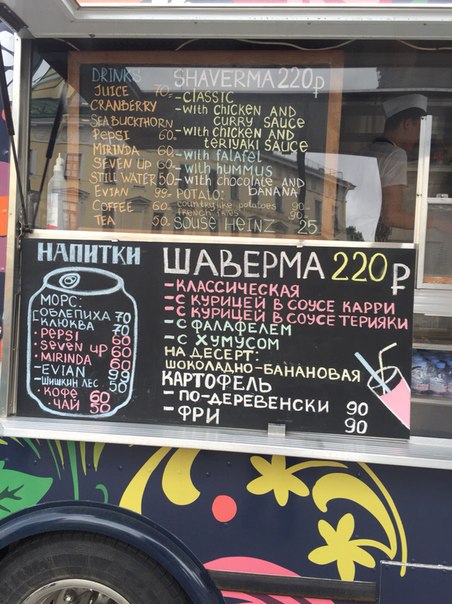 DRINKS
JUICE 70-
CRANBERRY
SEABUCKTHORN
PEPSI 60-
MIRINDA 60-
SEVEN UP 60-
STILL WATER 50-
EVIAN 90-
COFFEE 60-
TEA 50-
SHAVERMA 220₽
-CLASSIC
-WITH CHICKEN AND
CURRY SAUCE
-WITH CHICKEN AND
TERIYAKI SAUCE
-WITH FALAFEL
-WITH HUMMUS
-WITH CHOCOLATE AND
BANANA
POTATO:
COUNTRY-LIKE POTATOES 90-
FRENCH FRIES 90-
SOUSE HEINZ 25
НАПИТКИ
МОРС:
ОБЛЕПИХА 70
КЛЮКВА 70
• PEPSI 60
• SEVEN UP 60
• MIRINDA 60
-EVIAN 90
-ШИШКИН ЛЕС 50
• КОФЕ 60
• ЧАЙ 50
ШАВЕРМА 220₽
-КЛАССИЧЕСКАЯ
-С КУРИЦЕЙ В СОУСЕ КАРРИ
-С КУРИЦЕЙ В СОУСЕ ТЕРИЯКИ
-С ФАЛАФЕЛЕМ
-С ХУМУСОМ
НА ДЕСЕРТ:
ШОКОЛАДНО-БАНАНОВАЯ
КАРТОФЕЛЬ
- ПО-ДЕРЕВЕНСКИ 90
- ФРИ 90